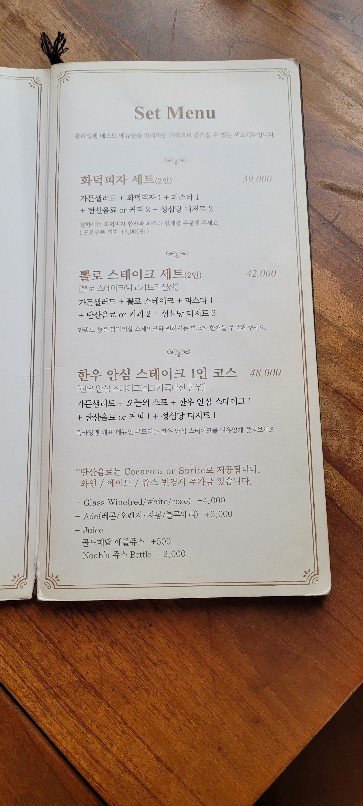 Set Menu
화덕피자 세트(2인) 39,000
가든샐러드 + 화덕피자 1 + 파스타 1
+ 탄산음료 or 커피 2 + 성심당 디저트 2
뽈로 스테이크 세트(2인) 42,000
가든샐러드 + 뽈로 스테이크 + 파스타 1
+ 탄산음료 or 커피 2 + 성심당 디저트 2
한우 안심 스테이크 1인 코스 48,000
가든샐러드 + 오늘의 스프 + 한우 안심 스테이크 1
+ 탄산음료 or 커피 1 + 성심당 디저트 1
*탄산음료는 Cocacola or Sprite로 제공됩니다.
와인 / 에이드 / 쥬스 변경시 추가금 있습니다.
- Glass Wine(red/white/rose) +4,000
- Ade(레몬/오렌지/자몽/블루레몬) +3,000
- Juice
콜드패답 애플쥬스 +500
Noah's 쥬스 Bottle +2,000